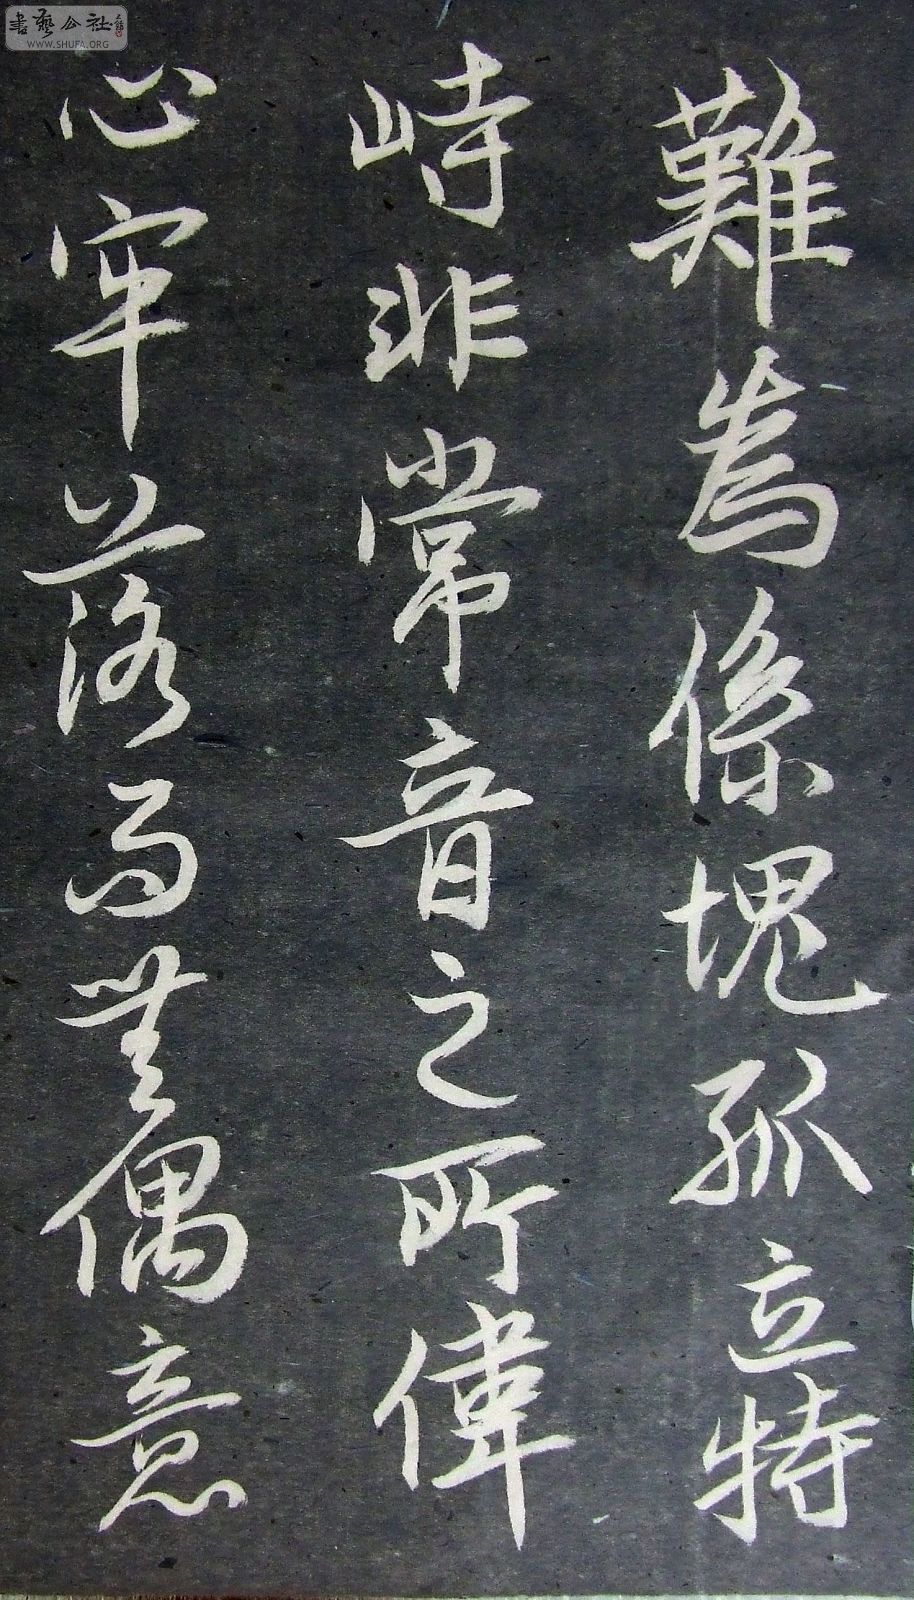 難為係塊孤立特
峙非常音之所偉
心牢落而無偶意
書藝公社
WWW.SHUFA.ORG